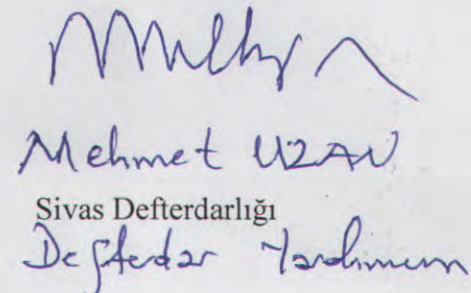 Mehmet UZAN
Sivas Defterdarlığı
Defterdar Yardımcısı